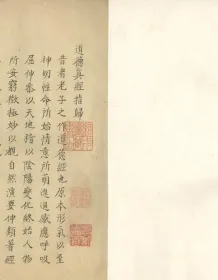 道德眞經指歸
昔者老子之作道德經也原本形氣以至
神明性命所始情意所萌進退感應呼吸
屈伸參以天地指以陰陽變化終始人物
所安窮微極妙以覩自然演要伸類著經